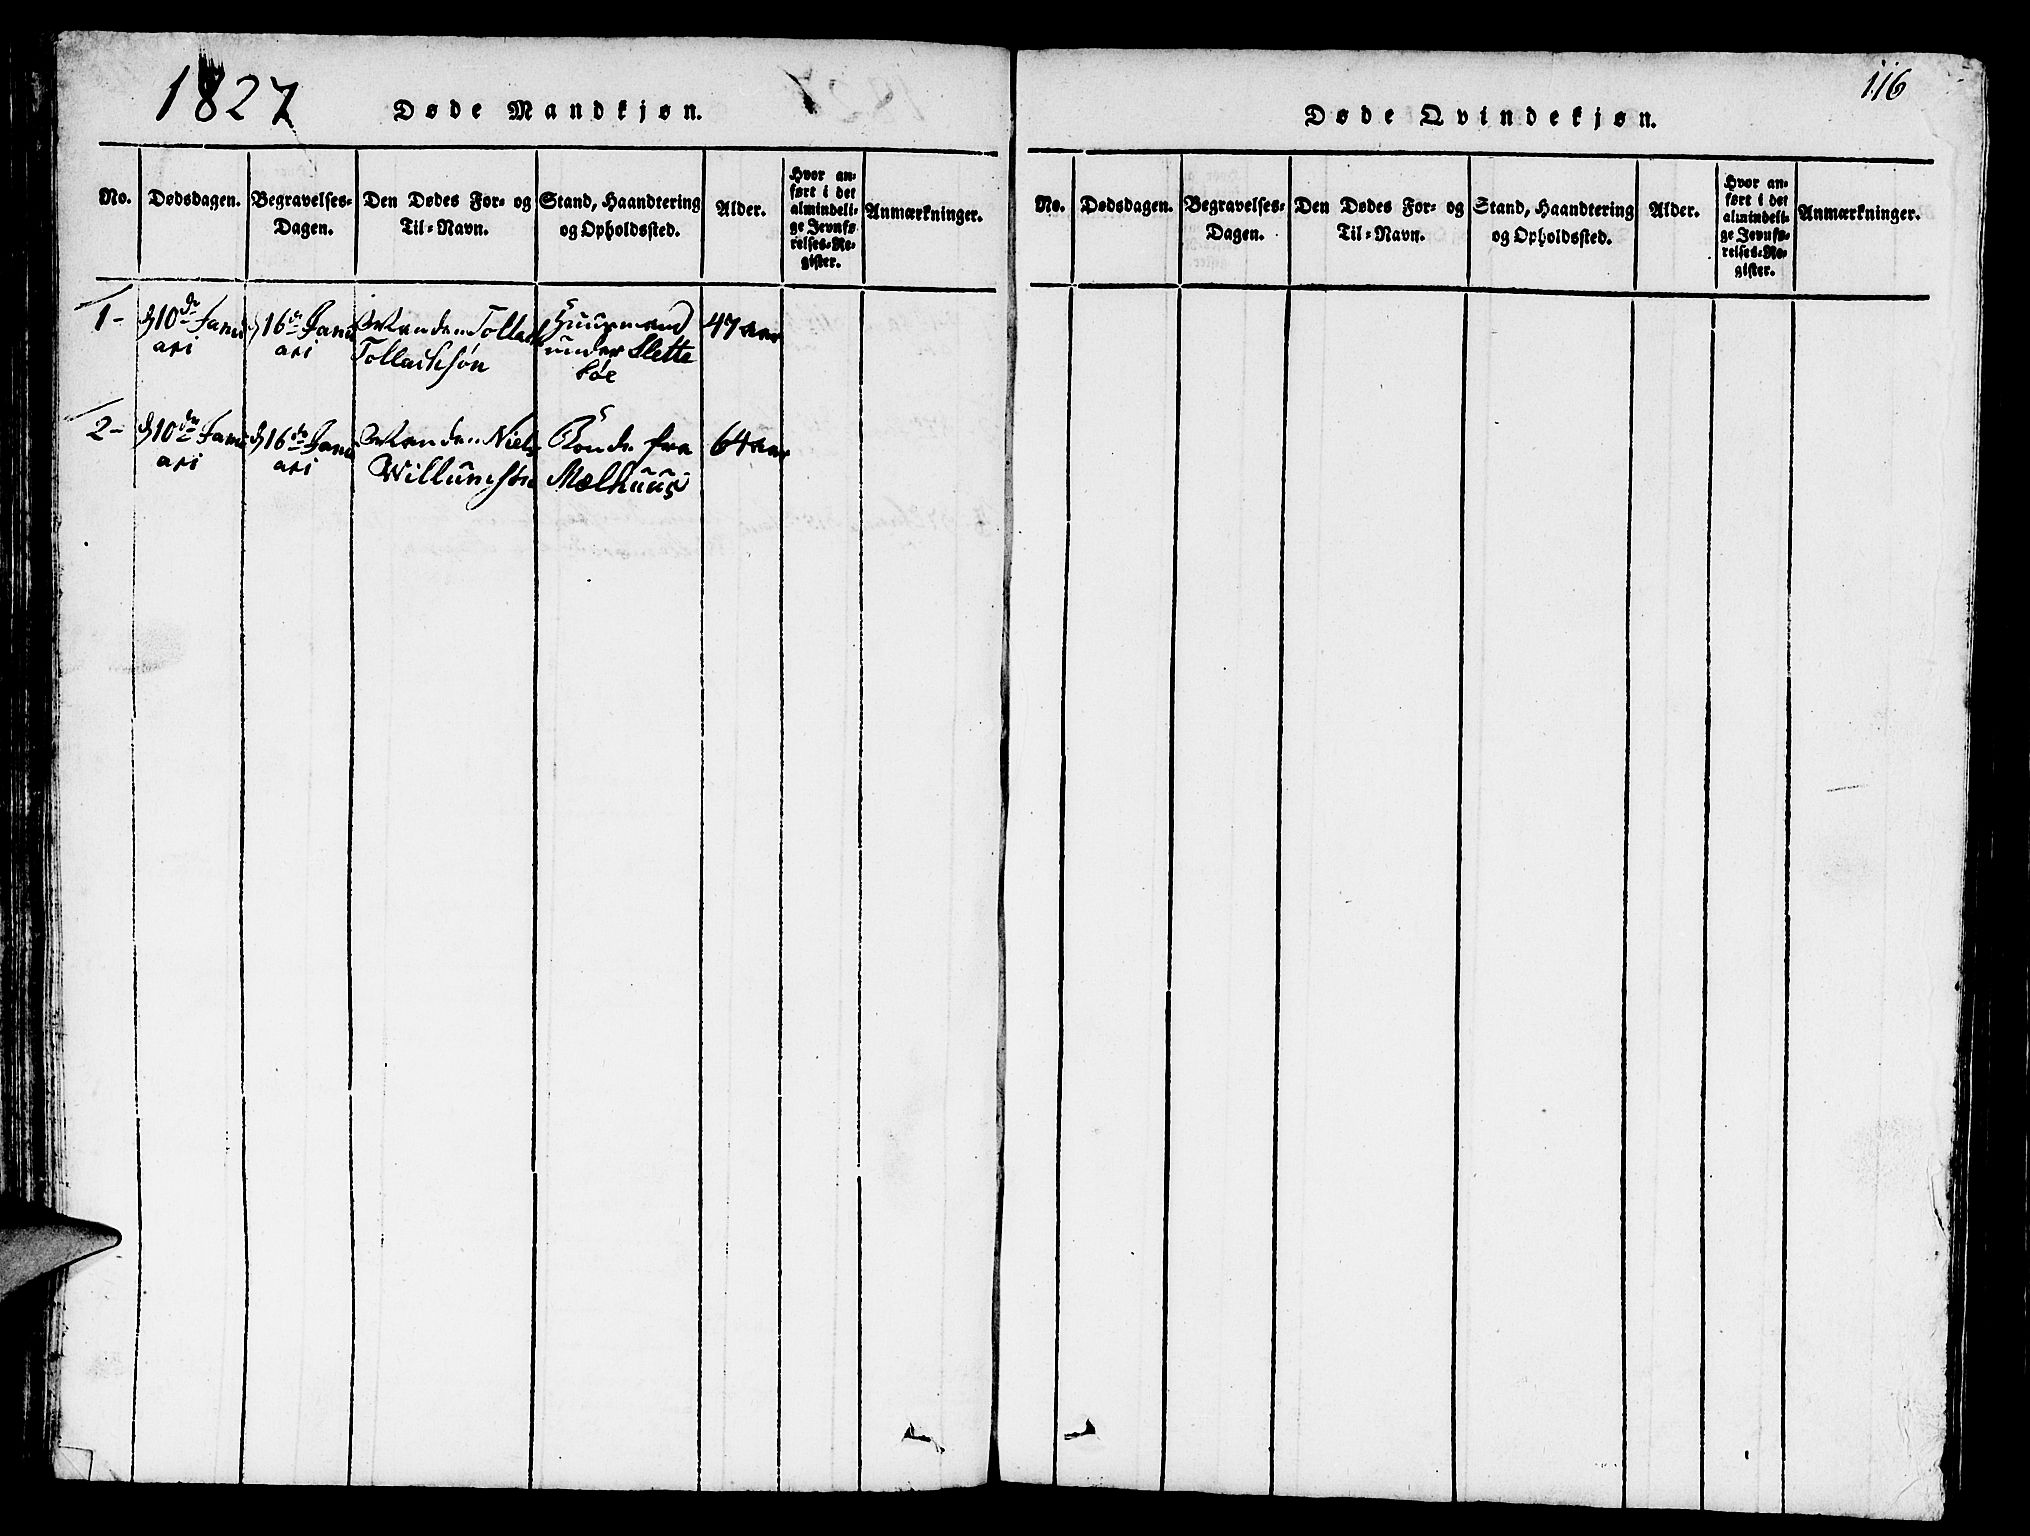 1827
Døde Mandkjøn.
No.
Dødsdagen.
Begravelses-
Dagen.
Den Dødes For- og
Til-Navn.
Stand, Haandtering
og Opholdssted.
Alder.
Hvor an-
ført i det
almindeli-
ge Jevnfø-
relses-Re-
gister.
Anmærkninger.
1-
d 10de Janu
ari
d 16de Janu
ari
Manden Tollack
Tollacksøn
Huusmand
under Slette
bøe
47 aar
2-
d 10de Janu
ari
d 16de Janu
ari
Manden Niels
Willumsøn
Bonde fra
Mælhuus
64 aar
116
Døde Qvindekjøn.
No.
Dødsdagen.
Begravelses-
Dagen.
Den Dødes For- og
Til-Navn.
Stand, Haandtering
og Opholdssted.
Alder.
Hvor an-
ført i det
almindeli-
ge Jevnfø-
relses-Re-
gister.
Anmærkninger.